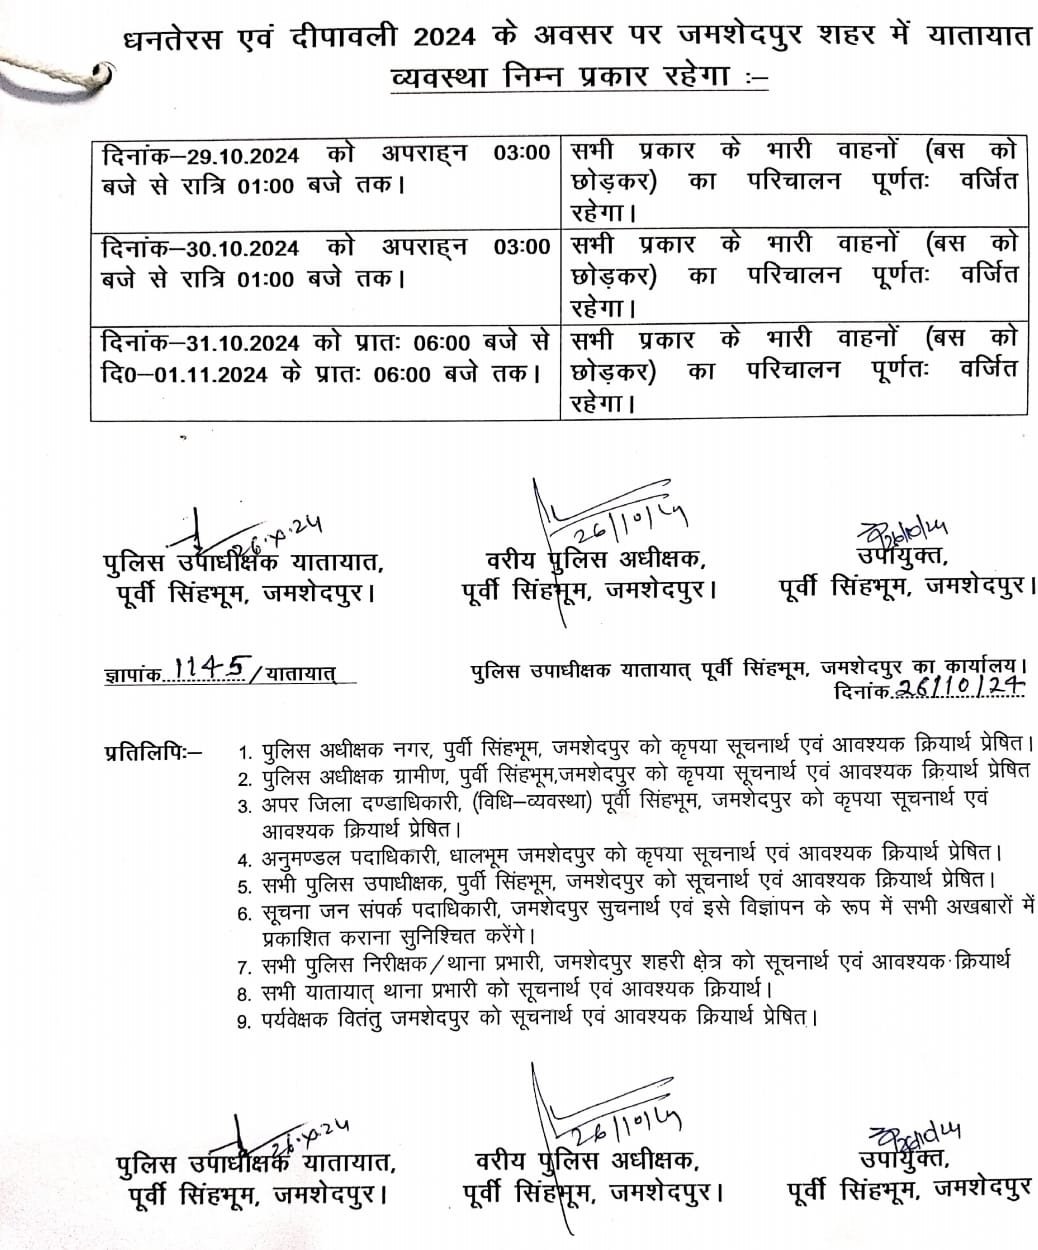 धनतेरस एवं दीपावली 2024 के अवसर पर जमशेदपुर शहर में यातायात
व्यवस्था निम्न प्रकार रहेगा :–
दिनांक–29.10.2024 को अपराह्न 03:00
बजे से रात्रि 01:00 बजे तक।
सभी प्रकार के भारी वाहनों (बस को
छोड़कर) का परिचालन पूर्णतः वर्जित
रहेगा।
दिनांक–30.10.2024 को अपराह्न 03:00
बजे से रात्रि 01:00 बजे तक।
सभी प्रकार के भारी वाहनों (बस को
छोड़कर) का परिचालन पूर्णतः वर्जित
रहेगा।
दिनांक–31.10.2024 को प्रातः 06:00 बजे से
दि0–01.11.2024 के प्रातः 06:00 बजे तक।
सभी प्रकार के भारी वाहनों (बस को
छोड़कर) का परिचालन पूर्णतः वर्जित
रहेगा।
26.x.24
पुलिस उपाधीक्षक यातायात,
पूर्वी सिंहभूम, जमशेदपुर।
26/10/24
वरीय पुलिस अधीक्षक,
पूर्वी सिंहभूम, जमशेदपुर।
26/10/24
उपायुक्त,
पूर्वी सिंहभूम, जमशेदपुर।
ज्ञापांक 1145/यातायात्
पुलिस उपाधीक्षक यातायात् पूर्वी सिंहभूम, जमशेदपुर का कार्यालय।
दिनांक 26/10/24
प्रतिलिपिः– 1. पुलिस अधीक्षक नगर, पुर्वी सिंहभूम, जमशेदपुर को कृपया सूचनार्थ एवं आवश्यक क्रियार्थ प्रेषित।
2. पुलिस अधीक्षक ग्रामीण, पुर्वी सिंहभूम,जमशेदपुर को कृपया सूचनार्थ एवं आवश्यक क्रियार्थ प्रेषित
3. अपर जिला दण्डाधिकारी, (विधि–व्यवस्था) पूर्वी सिंहभूम, जमशेदपुर को कृपया सूचनार्थ एवं
आवश्यक क्रियार्थ प्रेषित।
4. अनुमण्डल पदाधिकारी, धालभूम जमशेदपुर को कृपया सूचनार्थ एवं आवश्यक क्रियार्थ प्रेषित।
5. सभी पुलिस उपाधीक्षक, पुर्वी सिंहभूम, जमशेदपुर को सूचनार्थ एवं आवश्यक क्रियार्थ प्रेषित।
6. सूचना जन संपर्क पदाधिकारी, जमशेदपुर सुचनार्थ एवं इसे विज्ञापन के रूप में सभी अखबारों में
प्रकाशित कराना सुनिश्चित करेंगे।
7. सभी पुलिस निरीक्षक/थाना प्रभारी, जमशेदपुर शहरी क्षेत्र को सूचनार्थ एवं आवश्यक क्रियार्थ
8. सभी यातायात् थाना प्रभारी को सूचनार्थ एवं आवश्यक क्रियार्थ।
9. पर्यवेक्षक वितंतु जमशेदपुर को सूचनार्थ एवं आवश्यक क्रियार्थ प्रेषित।
26.x.24
पुलिस उपाधीक्षक यातायात,
पूर्वी सिंहभूम, जमशेदपुर।
26/10/24
वरीय पुलिस अधीक्षक,
पूर्वी सिंहभूम, जमशेदपुर।
उपायुक्त,
पूर्वी सिंहभूम, जमशेदपुर